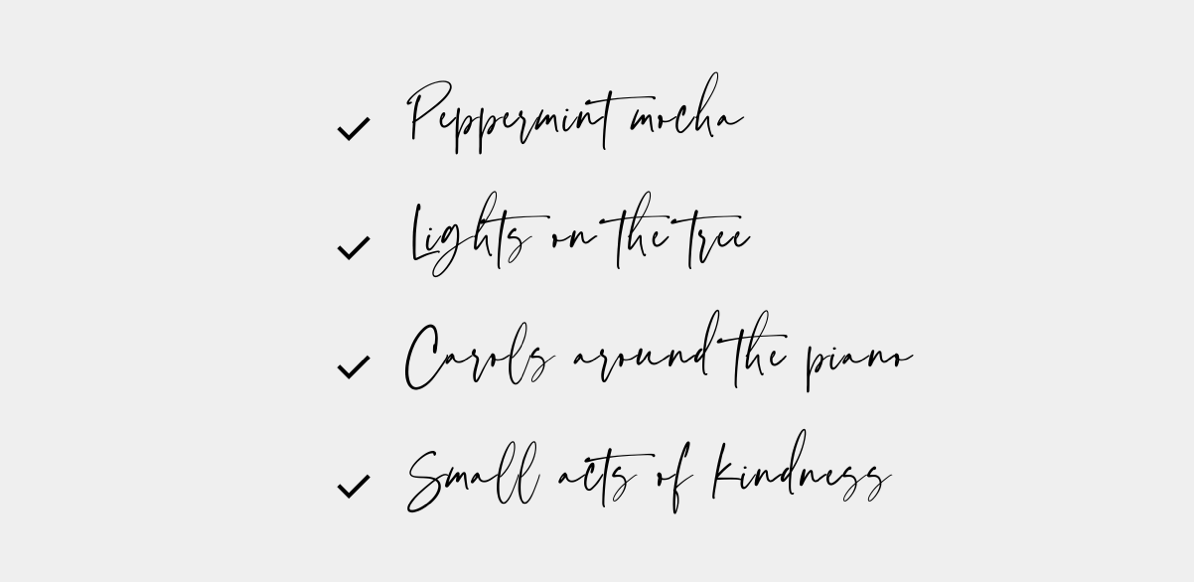 Peppermint mocha
Lights on the tree
Carols around the piano
Small acts of kindness